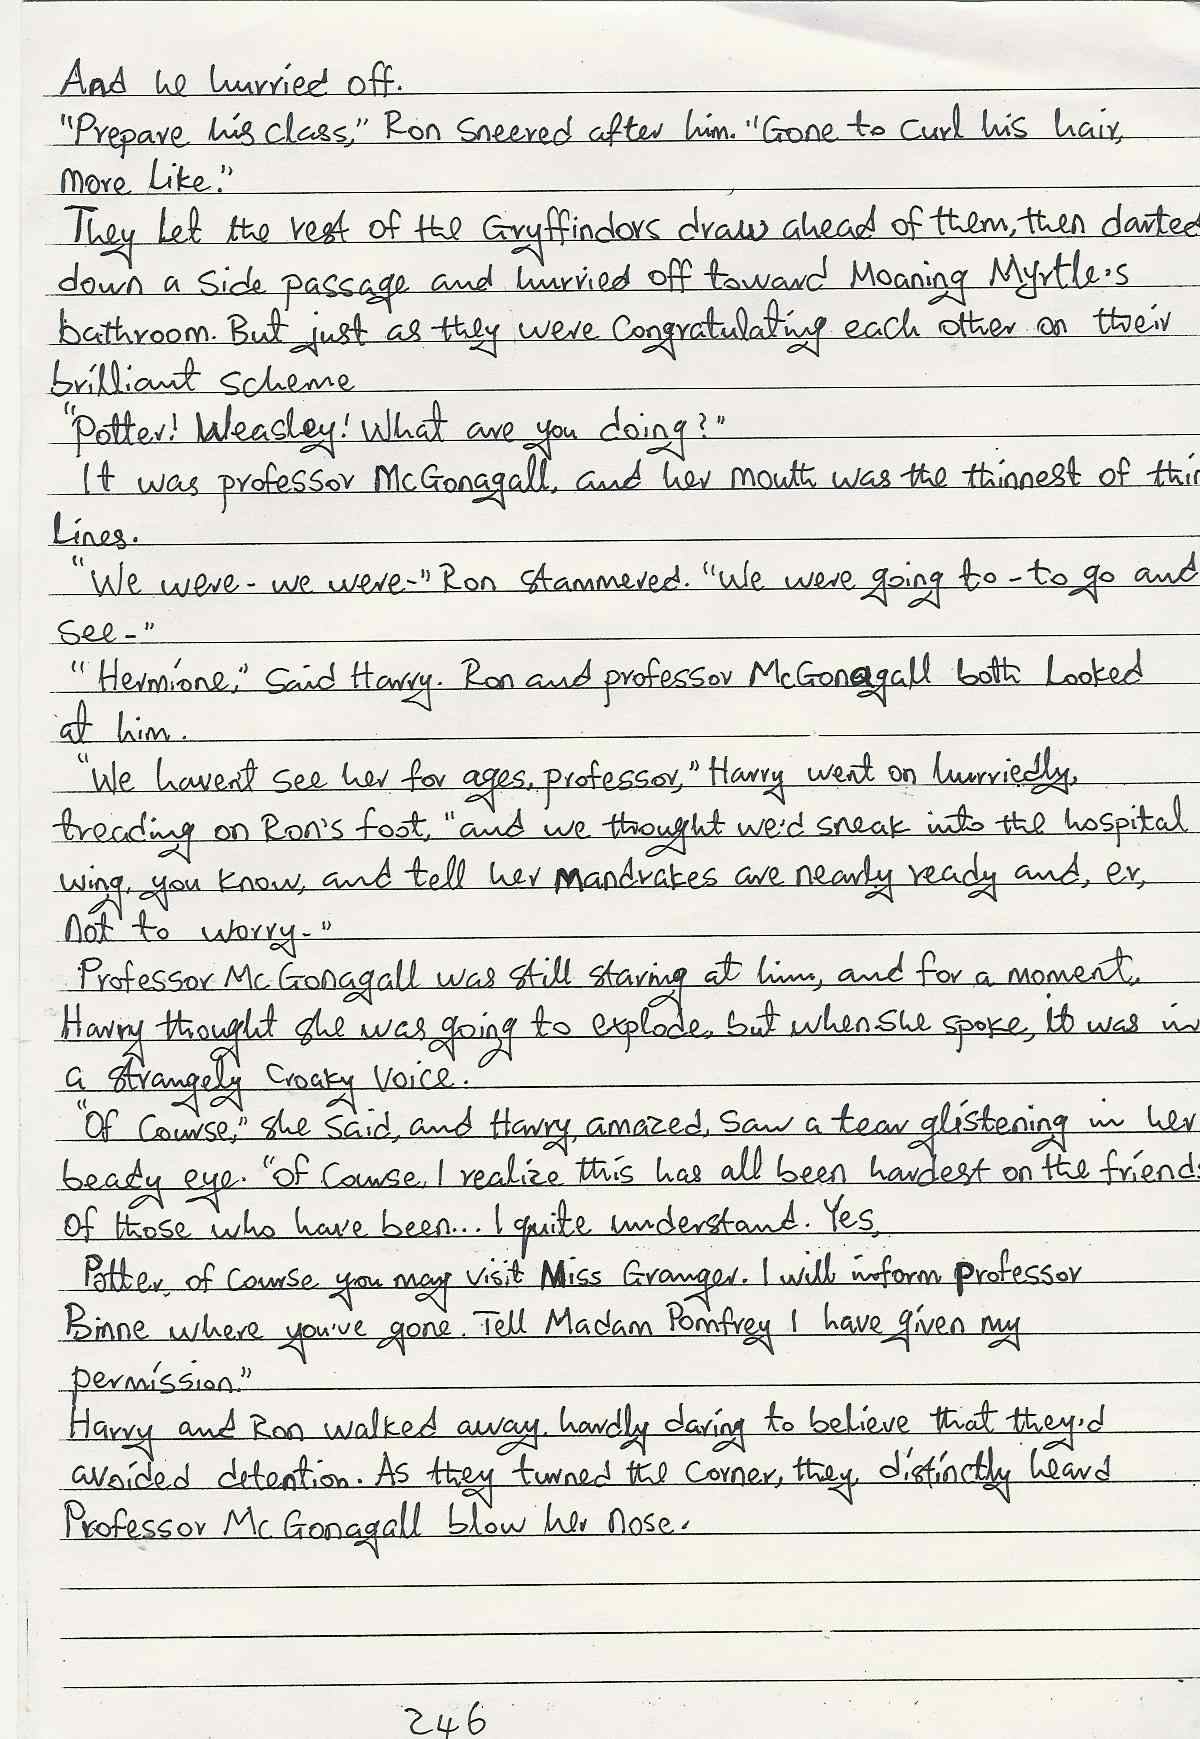 And he hurried off.
"Prepare his class," Ron sneered after him. "Gone to curl his hair,
more like."
They let the rest of the Gryffindors draw ahead of them, then darted
down a side passage and hurried off toward Moaning Myrtle's
bathroom. But just as they were congratulating each other on their
brilliant scheme
"Potter! Weasley! What are you doing?"
It was professor McGonagall, and her mouth was the thinnest of thin
lines.
"We were - we were-" Ron stammered. "We were going to - to go and
see -"
"Hermione," said Harry. Ron and professor McGonagall both looked
at him.
"We havent see her for ages, professor," Harry went on hurriedly,
treading on Ron's foot, "and we thought we'd sneak into the hospital
wing, you know, and tell her Mandrakes are nearly ready and, er,
not to worry-"
Professor McGonagall was still staring at him, and for a moment,
Harry thought she was going to explode, but when she spoke, it was in
a strangely croaky voice.
"Of course," she said, and Harry, amazed, saw a tear glistening in her
beady eye. "Of course, I realize this has all been hardest on the friends
of those who have been... I quite understand. Yes,
Potter, of course you may visit Miss Granger. I will inform Professor
Binne where you've gone. Tell Madam Pomfrey I have given my
permission."
Harry and Ron walked away, hardly daring to believe that they'd
avoided detention. As they turned the corner, they, distinctly heard
Professor McGonagall blow her nose.
246